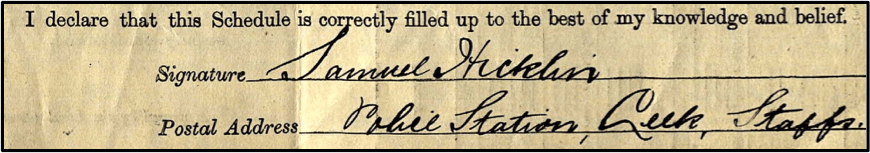 I declare that this Schedule is correctly filled up to the best of my knowledge and belief.
Signature Samuel Hicklin
Postal Address Police Station, Leek, Staffs.